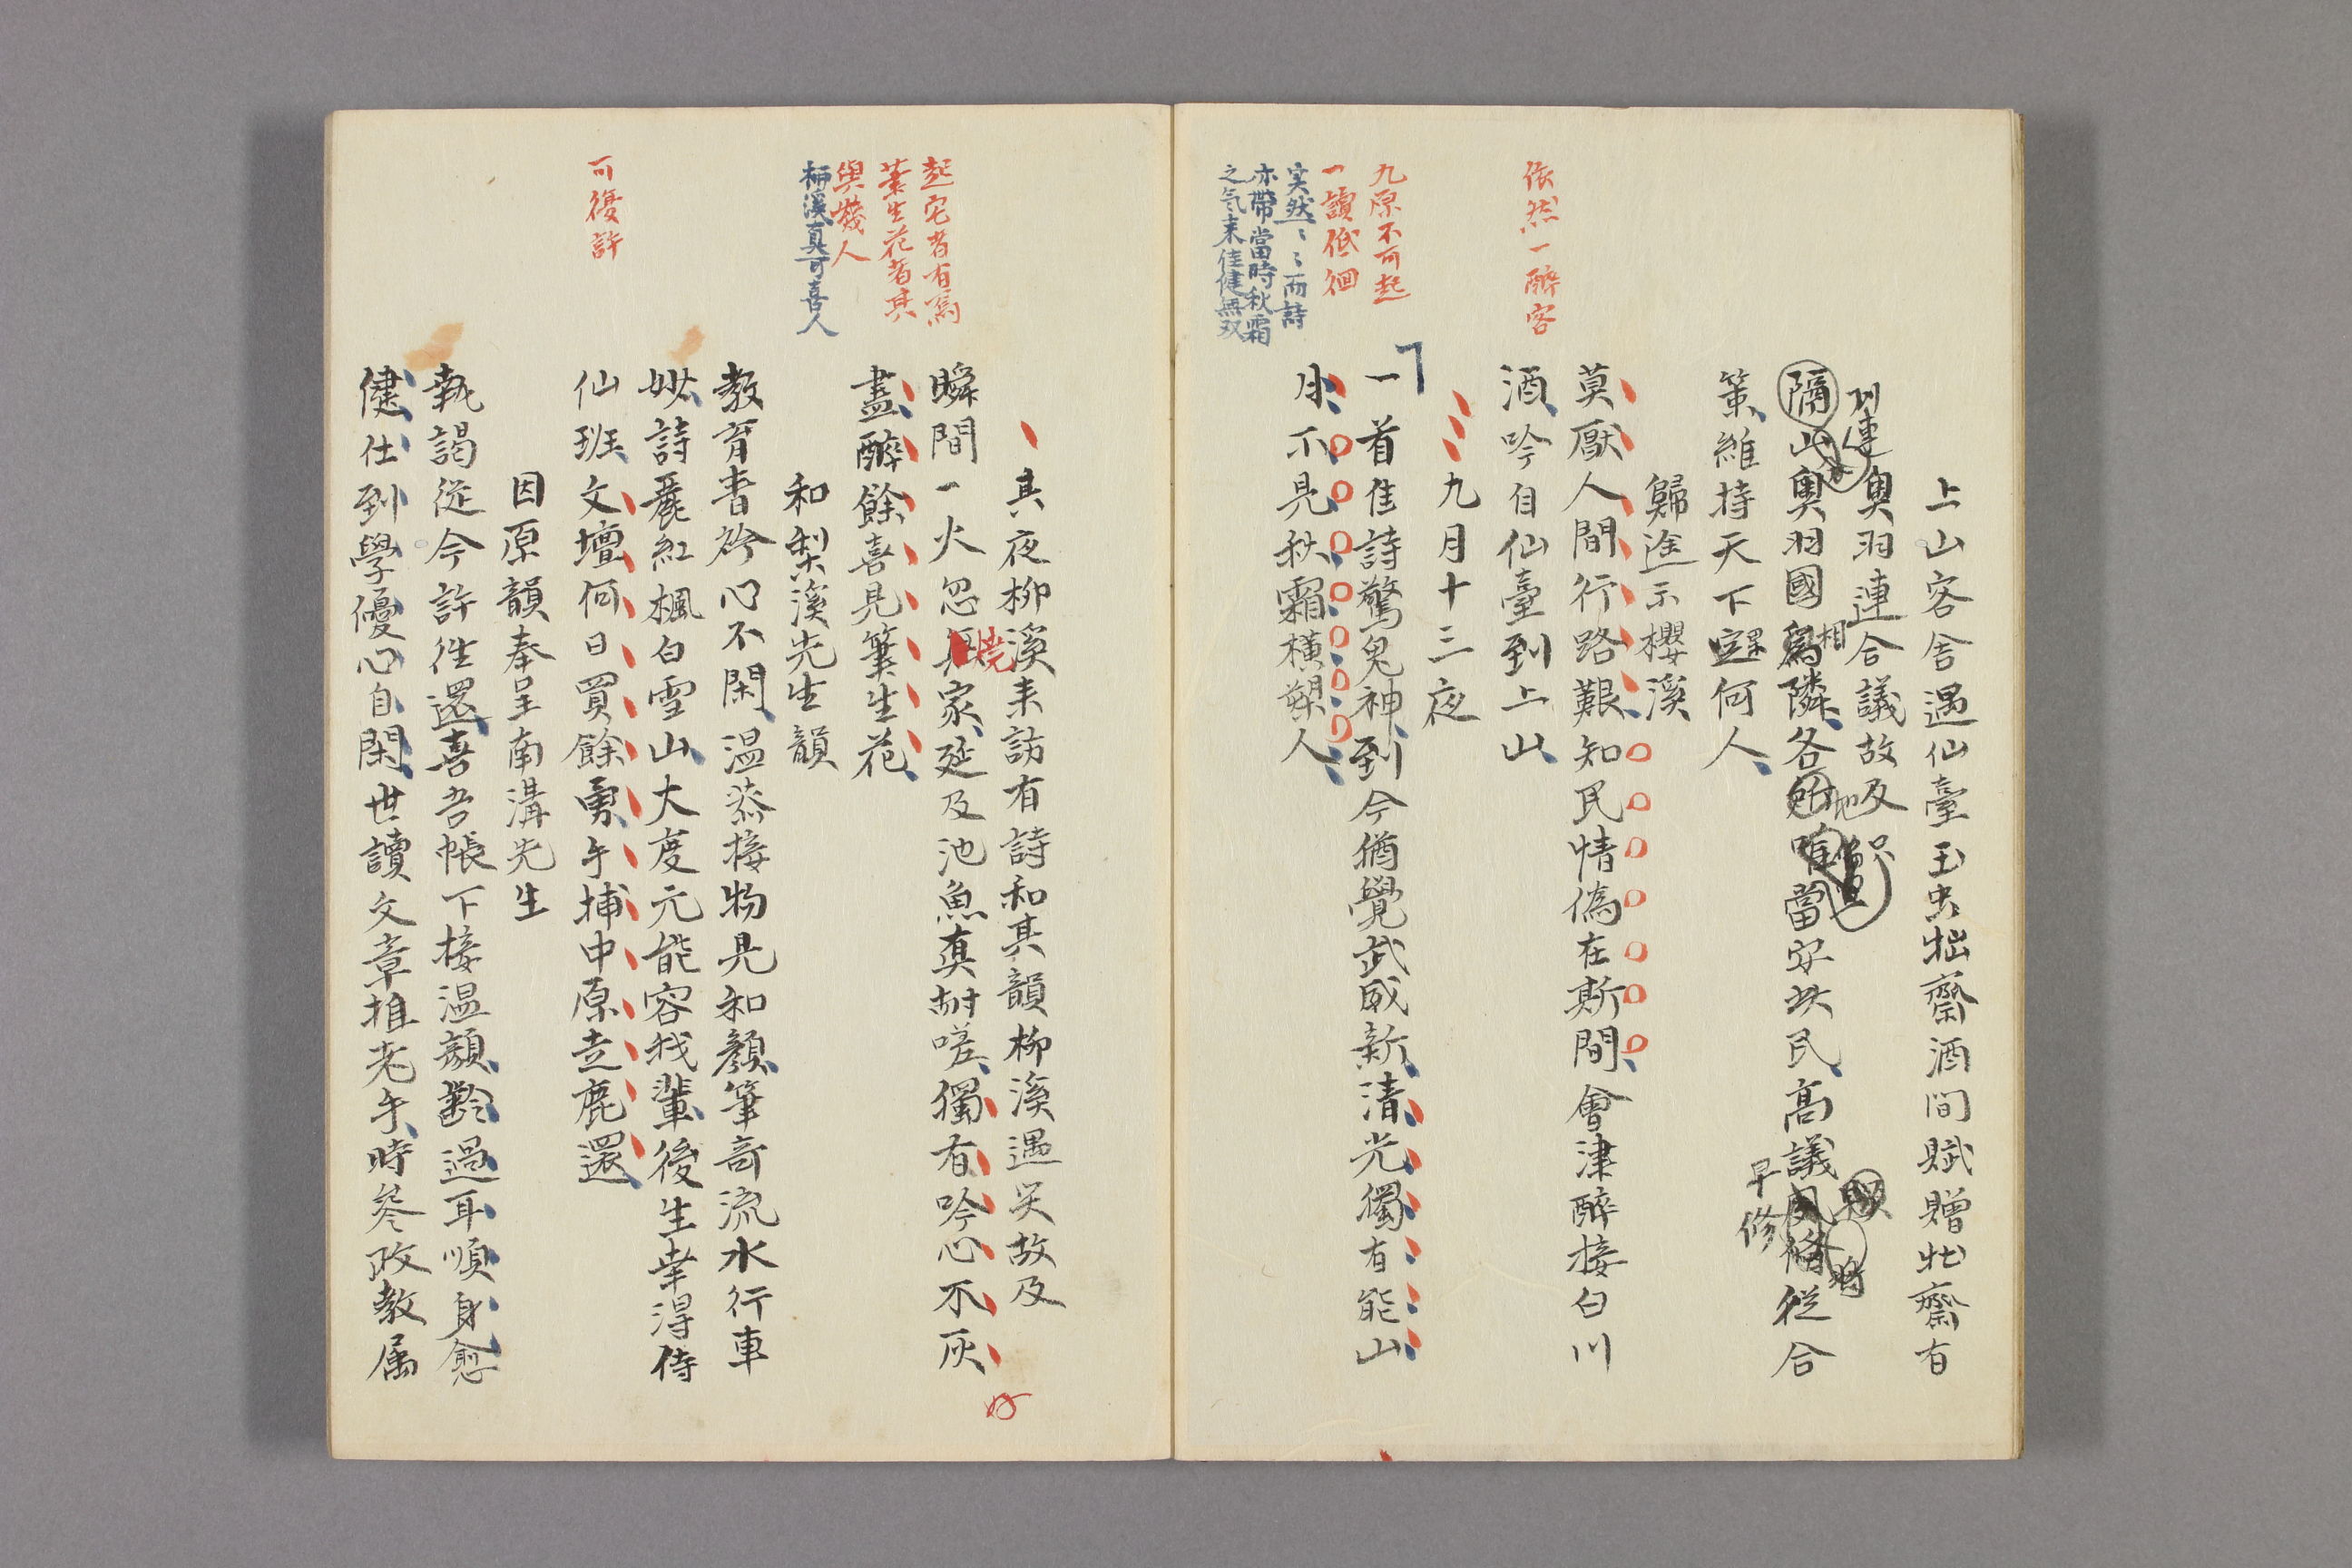 上山客舎遇仙臺玉虫拙齋酒間賦贈拙齋有
奥羽連合議故及
列
連
隔山奥羽國為隣各
相
地
當安此民高議
従合
早修
将
策維持天下定何人
歸途示櫻溪
莫厭人間行路艱知民情偽在斯間會津醉接白川
酒吟自仙臺到上山
依然一醉客
九月十三夜
一首佳詩驚鬼神到今猶覺武威新清光獨有能山
月不見秋霜横槊人
九原不可起
一讀低徊
実然〻〻而詩
亦帶當時秋霜
之気来佳健無双
其夜柳溪来訪有詩和其韻柳溪遇災故及
瞬間一火忽
焼
家延及池魚真耐嗟獨有吟心不灰
盡醉餘喜見筆生花
起宅者有焉
筆生花者其
與幾人
柳溪真可喜人
和梨溪先生韻
教育青衿心不閑温恭接物見和顔筆奇流水行車
妙詩麗紅楓白雪山大度元能容我輩後生幸得侍
仙班文壇何日買餘勇手捕中原走鹿還
可復許
因原韻奉呈南溝先生
執謁從今許往還喜吾帳下接温顔齡過耳順身愈
健仕到學優心自閑世讀文章推老手時參政教属